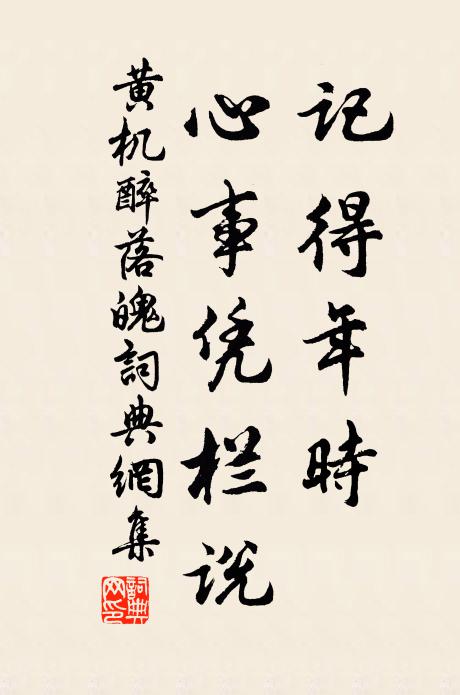 记得年時
心事凭栏说
黄机醉落魄詞典網集
詞典網印